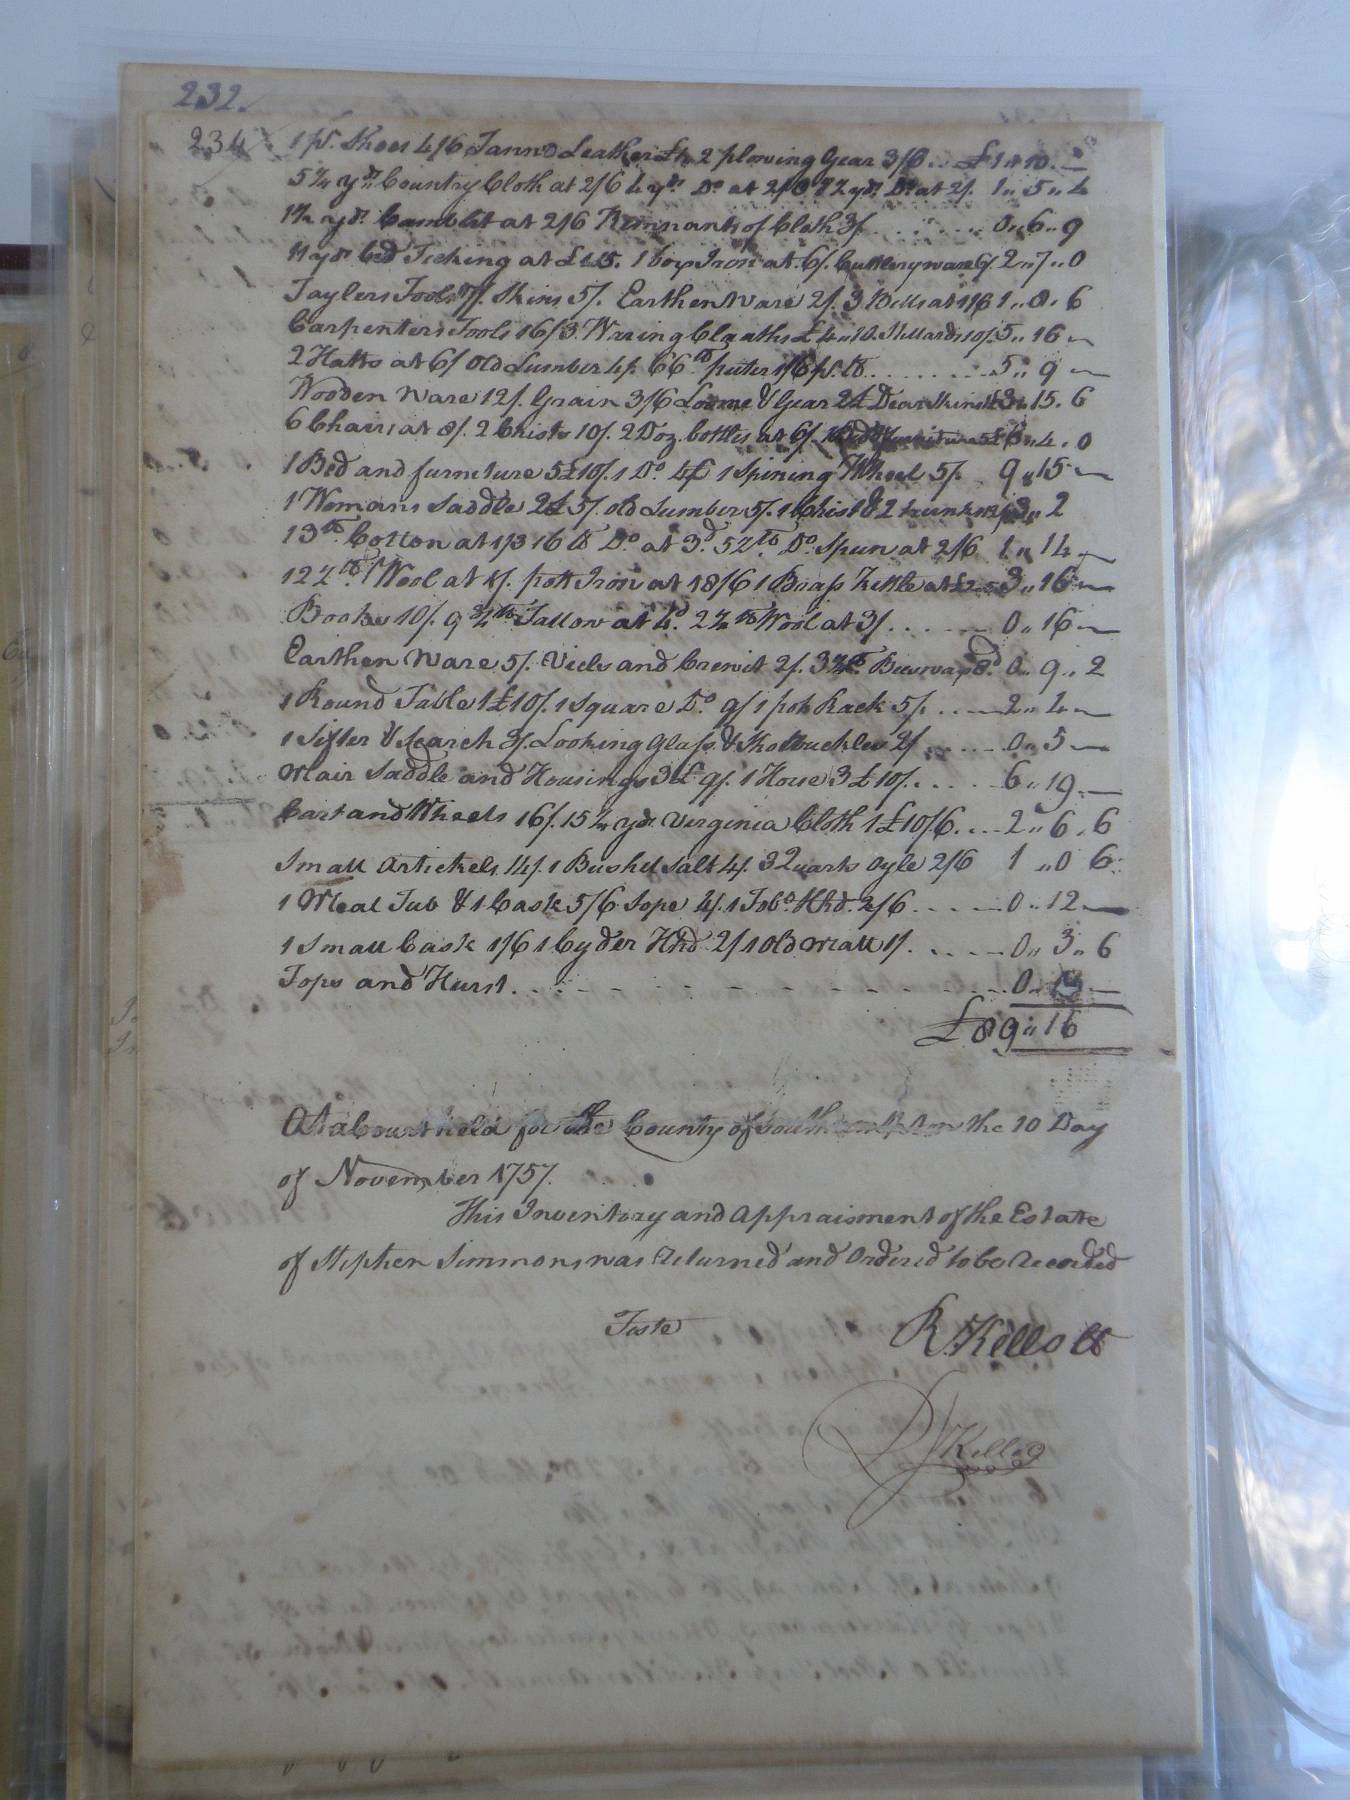 232.
234 1 pr. Shoes 4/6 Tann'd Leather £1. 2 plowing Gear 3/6 .. £1
5¼ yds. Country Cloth at 2/6 4 yds. Do. at 2/6 yds. Do. at 2/. 1 .. 5 .. 4
yds. Camblet at 2/6 Remnants of Cloth 3/. ........ 0 .. 6 .. 9
11 yds bed Ticking at 1 box Iron at 6/. Cuttlery ware 2 .. 7 .. 0
Taylers Tools Skins 5/. Earthen Ware 2/. 3 Bells at 1 .. 8 .. 6
Carpenters Tools 16/3. Waring Cloaths £4 .. 10. Stillards 10/. 5 .. 16 —
2 Hatts at 6/ Old Lumber 4/. 66 lb. puter pr. lb. ........ 5 .. 9 —
Wooden Ware 12/. Grain 3/6 Loome & Gear 2£ Dear Skins 15 .. 6
6 Chairs at 8/. 2 Chists 10/. 2 Doz. bottles at 6/. 4 .. 0
1 Bed and furniture 5£10/. 1 Do. 4£ 1 Spining Wheel 5/. 9 .. 15 —
1 Womans Saddle 2£5/. old Lumber 5/. 1 Chist & 2 trunks .. 2
13 lb. Cotton at 1/3 16 lb Do. at 3d. 5½ lb. Do. Spun at 2/6 1 .. 14 —
12½ lb. Wool at 1/. pott Iron at 18/6 1 Brass Kettle at 3 .. 16 —
Books 10/. 9¾ lb Tallow at 4d. 2½ lb Wool at 3/. ...... 0 .. 16 —
Earthen Ware 5/. Viels and Crewit 2/. Beeswax 0 .. 9 .. 2
1 Round Table 1£10/. 1 Square Do. 9/ 1 pott Rack 5/. .... 2 .. 4 —
1 Sifter & Search 3/. Looking Glass & Shoebuckles 2/ ...... 0 .. 5 —
Mair Saddle and Housings 3£ 9/. 1 Horse 3£10/. .... 6 .. 19 —
Cart and Wheels 16/. 15¼ yds. Virginia Cloth 1£10/6 .... 2 .. 6 .. 6
Small Artickels 14/. 1 Bushel Salt 4/. 3 Quarts Oyle 2/6 1 .. 0 6
1 Meal Tub & 1 Cask 5/6 Sope 4/. 1 Tobo. Hhd. 2/6 ..... 0 .. 12 —
1 Small Cask 1/6 1 Cyder Hhd. 2/ 1 Old Matt 1/. ..... 0 .. 3 .. 6
Tops and Hurst. - - - - - - - - - 0
£89 .. 16
At a Court held for the County of Southampton the 10 Day
of November 1757.
This Inventory and Appraisment of the Estate
of Stephen Simmons was returned and Ordered to be recorded
Teste R. Kello Ct
Kello